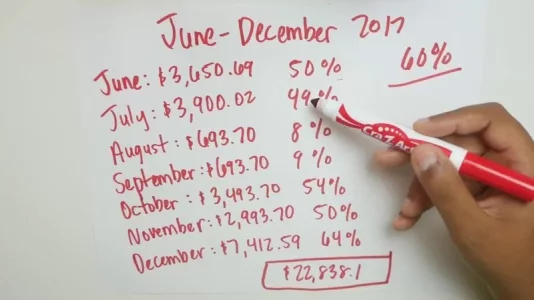 June - December 2017
60%
June: $3,650.69 50%
July: $3,900.02 49%
August: $693.70 8%
September: $693.70 9%
October: $3,493.70 54%
November: $2,993.70 50%
December: $7,412.59 64%
$22,838.1
Cra-Z-Art